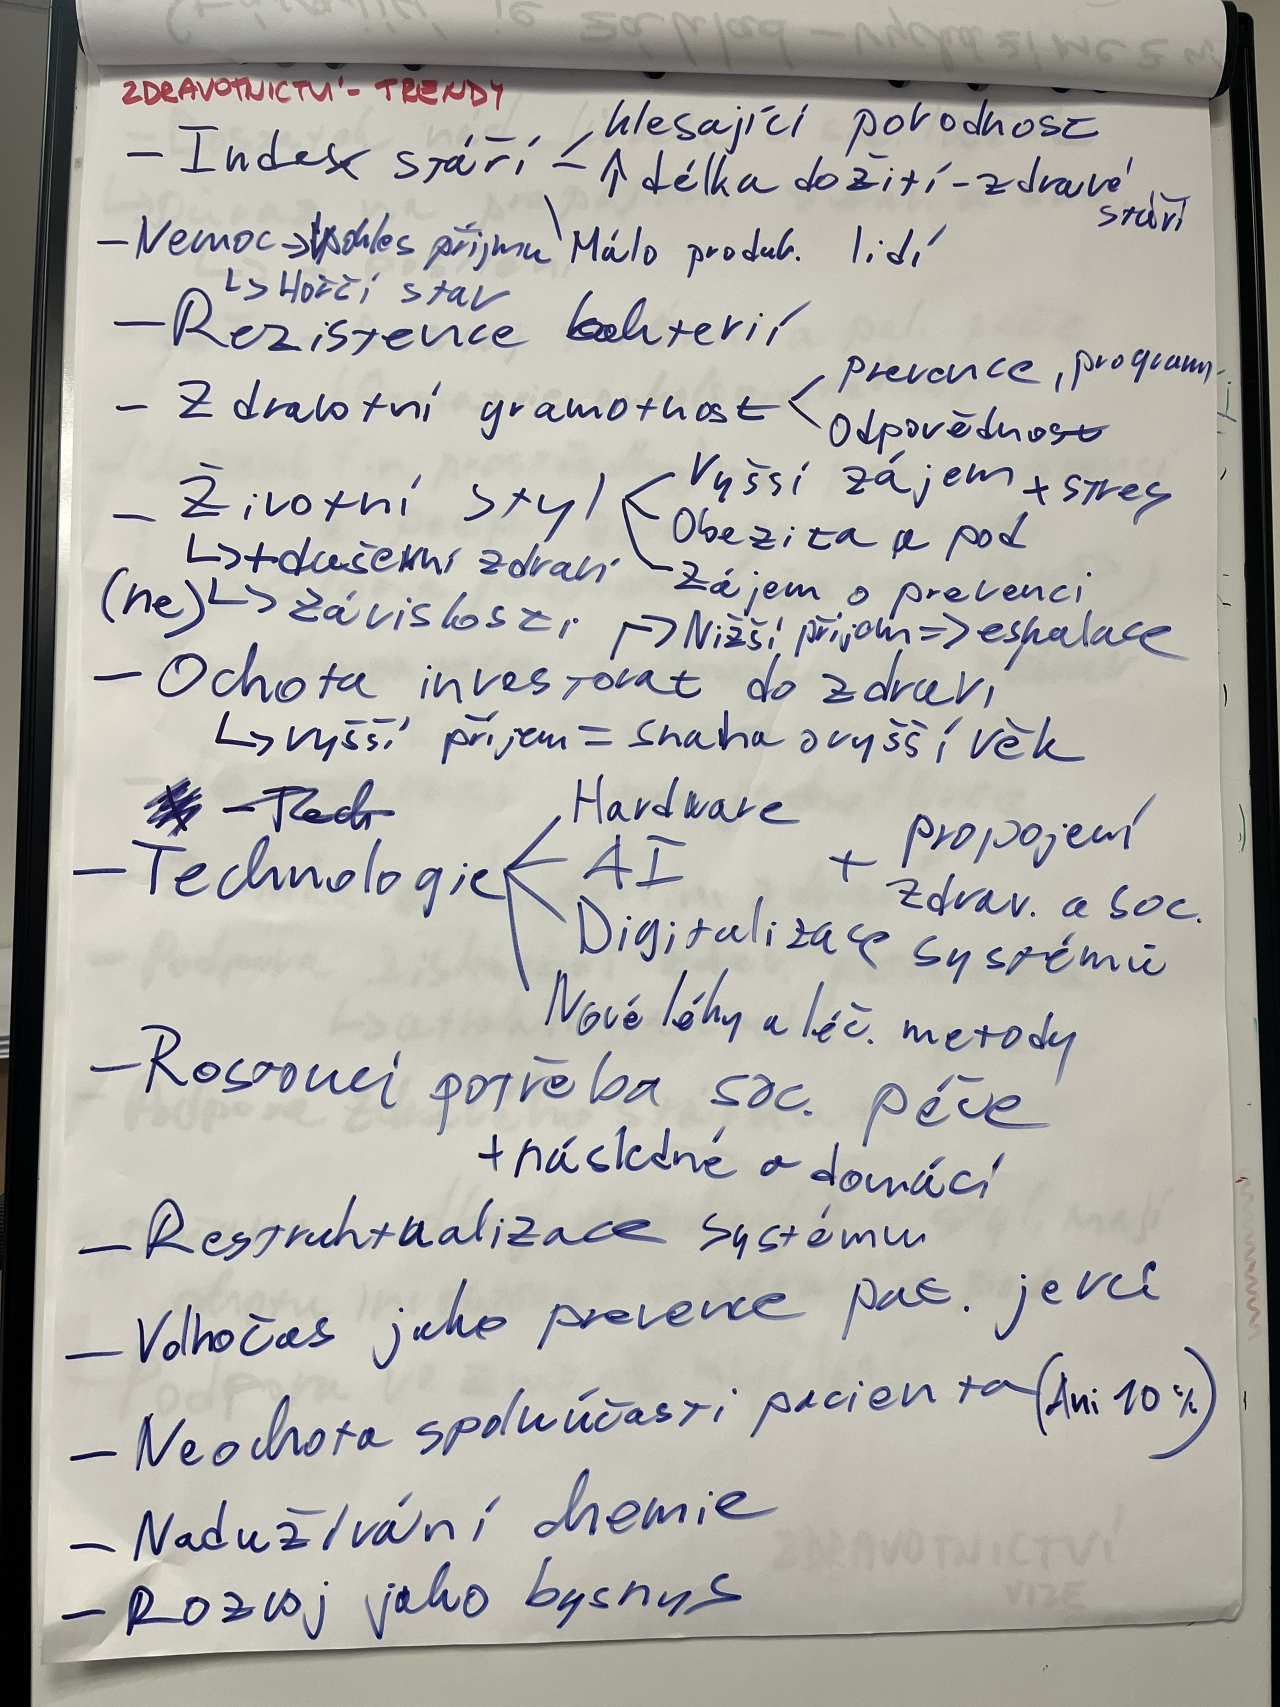 ZDRAVOTNICTVÍ - TRENDY
- Index stáří - klesající porodnost
↑ délka dožití - zdravé stáří
Málo produk. lidí
- Nemoc → pokles příjmu
↳ Horčí stav
- Rezistence bakterií
- Zdravotní gramotnost < prevence, program
Odpovědnost
- Životní styl < Vyšší zájem + stres
Obezita a pod
Zájem o prevenci
↳ + duševní zdraví
(ne) ↳ závislosti
↱ Nižší příjem => eskalace
- Ochota investovat do zdraví
↳ vyšší příjem = snaha o vyšší věk
- Tech
- Technologie < Hardware
AI
Digitalizace
Nové léky a léč. metody
+ propojení
zdrav. a soc.
systémů
- Rostoucí potřeba soc. péče
+ následné a domácí
- Restruktualizace systému
- Volnočas jako prevence pat. jevů
- Neochota spoluúčasti pacienta (Ani 10 %)
- Nadužívání chemie
- Rozvoj jako bysnys